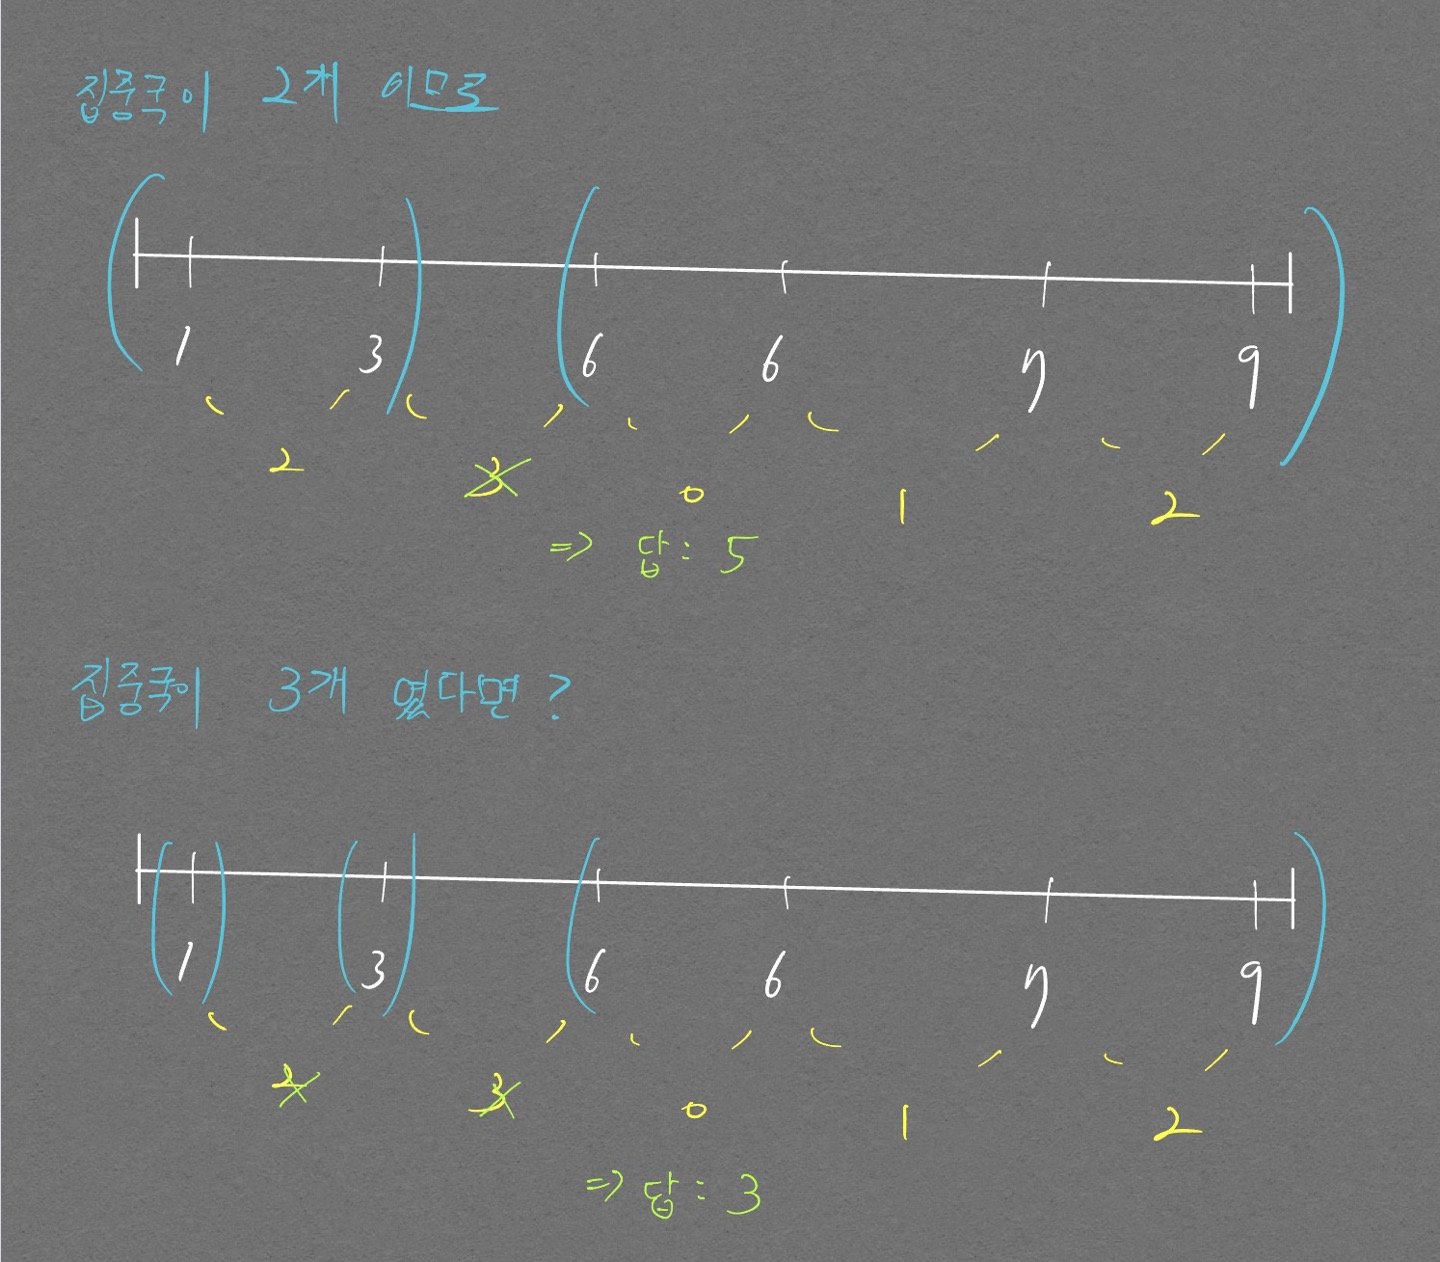 집중국이 2개 이므로
1 3 6 6 7 9
2 3 0 1 2
=> 답: 5
집중국이 3개 였다면?
1 3 6 6 7 9
2 3 0 1 2
=> 답: 3